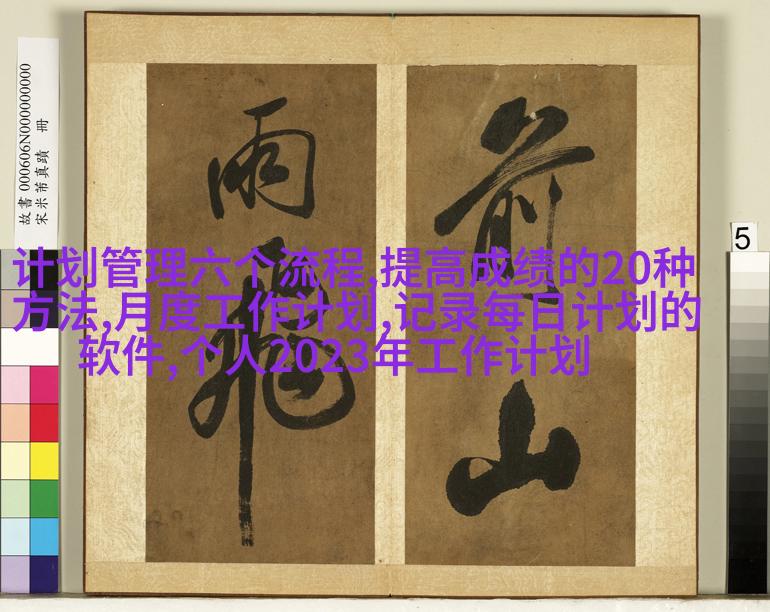 故書 000606N000000000
宋米芾真蹟 冊
前山
雨飛
5
计划管理六个流程,提高成绩的20种
方法,月度工作计划,记录每日计划的
软件,个人2023年工作计划